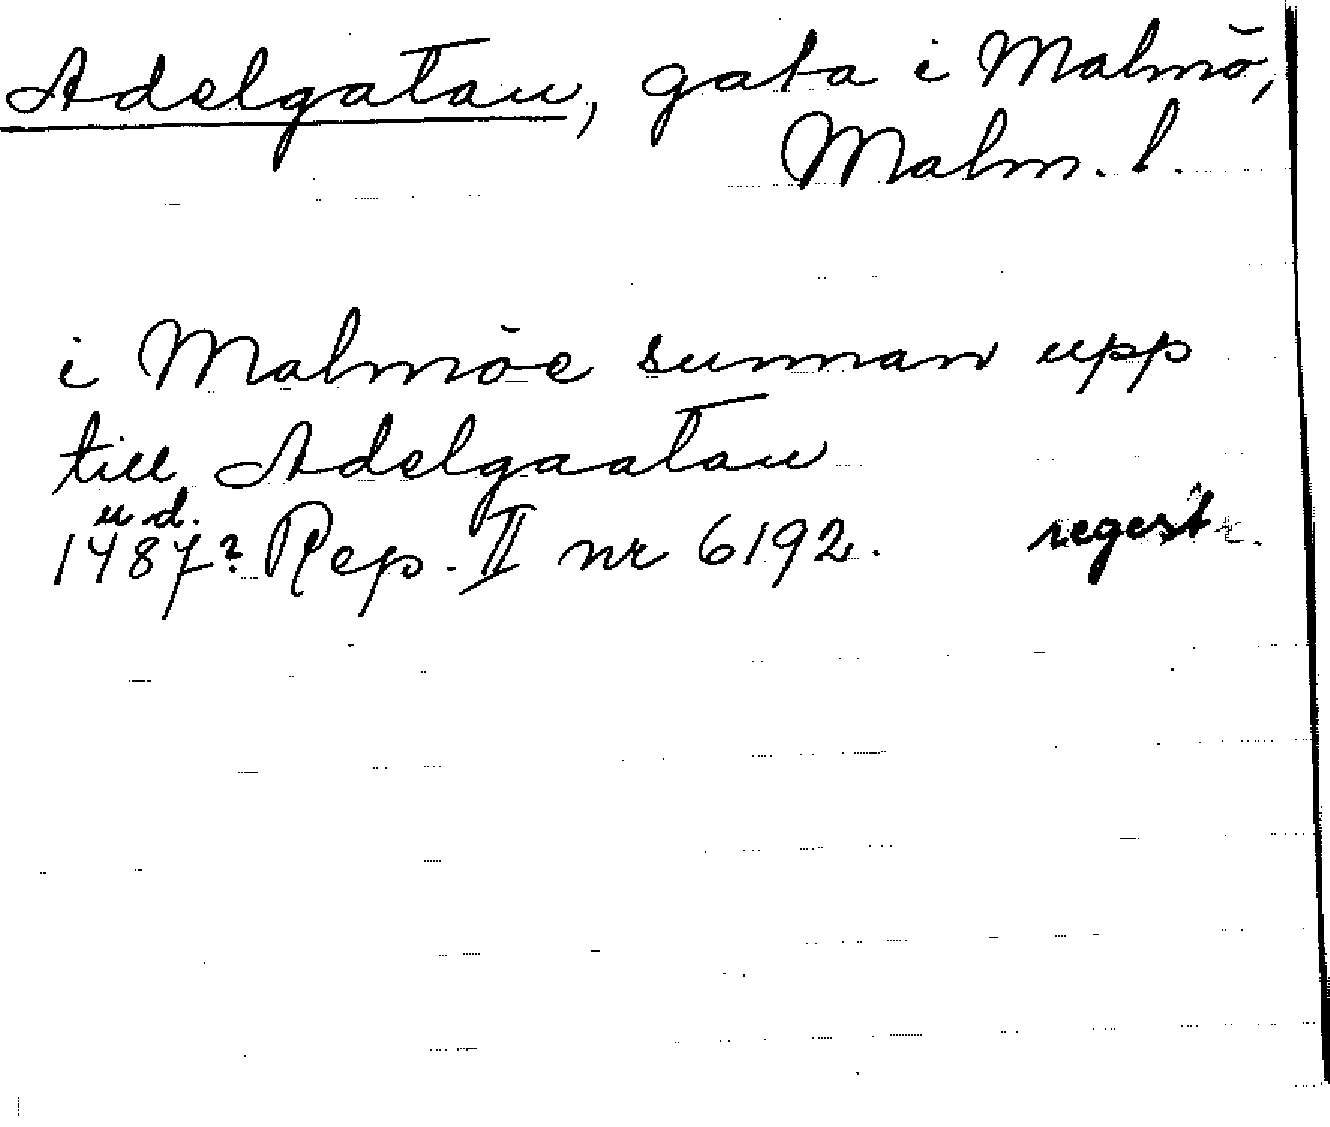 Adelgatan, gata i Malmö,
Malm. l.
i Malmöe sunnan upp
till Adelgaatan
u d.
1487? Rep. II nr 6192. regest.